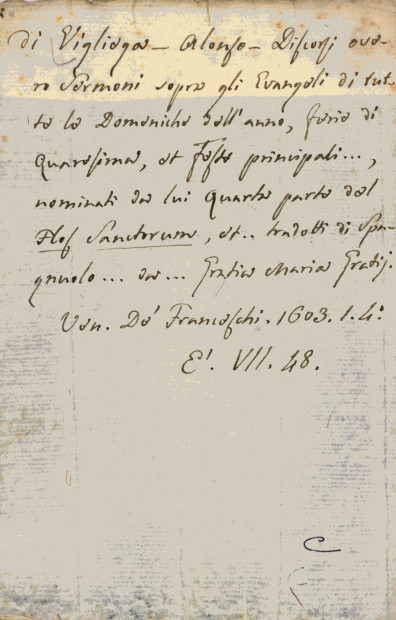 di Vigliega - Alonso - Discorsi ove-
ro Sermoni sopra gli Evangeli di tut-
te le Domeniche dell'anno, ferie di
Quaresima, et feste principali...,
nominati da lui Quarta parte del
Flos Sanctorum, et.. tradotti di Spa-
gnuolo... da... Gratia Maria Gratij.
Ven. De' Franceschi. 1603. 1. 4º
E'. VII. 48.
C